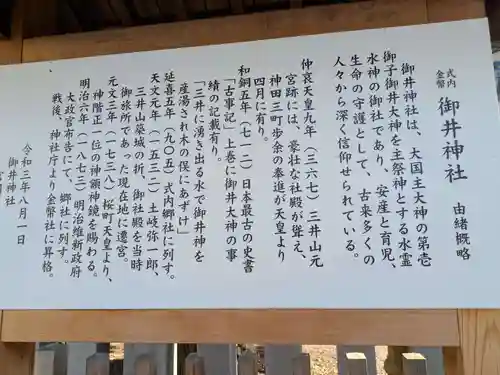 式内
金幣
御井神社　由緒概略
御井神社は、大国主大神の第壱
御子御井大神を主祭神とする水霊
水神の御社であり、安産と育児、
生命の守護として、古来多くの
人々から深く信仰せられている。
仲哀天皇九年（三六七）三井山元
宮跡には、豪壮な社殿が聳え、
神田三町歩余の奉進が天皇より
四月に有り。
和銅五年（七一二）日本最古の史書
「古事記」上巻に御井大神の事
績の記載有り。
「三井に湧き出る水で御井神を
産湯され木の俣にあずけ」
延喜五年（九〇五）式内郷社に列す。
天文元年（一五三二）土岐弥一郎、
三井山築城の折、御社殿を当時
御旅所であった現在地に遷宮。
元文三年（一七三八）桜町天皇より、
神階正一位の神額神鏡を賜わる。
明治六年（一八七三）明治維新政府
大政官布告にて、郷社に列す。
戦後、神社庁より金幣社に昇格。
令和三年八月一日
御井神社